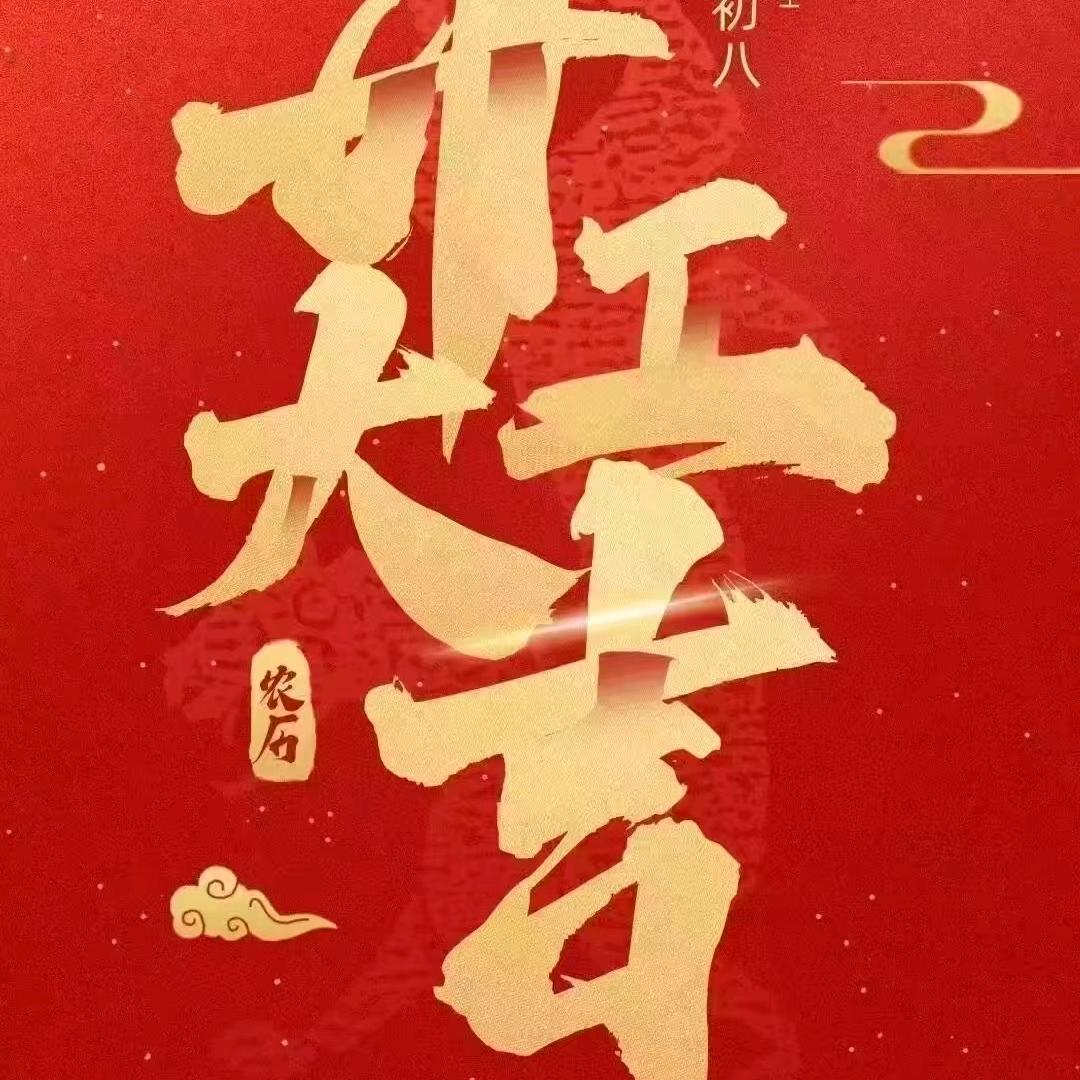 开工大吉
初八
农历